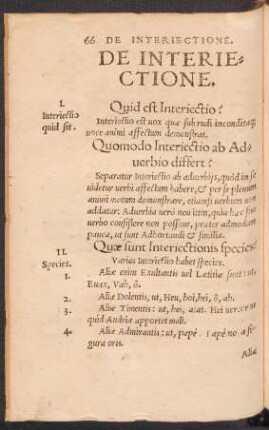 66 DE INTERIECTIONE.
DE INTERIE-
CTIONE.
I.
Interiectio
quid sit.
Quid est Interiectio?
Interiectio est uox quæ sub rudi incondita\u0301q;
uoce animi affectum demonstrat.
Quomodo Interiectio ab Ad-
uerbio differt?
Separatur Interiectio ab aduerbijs, quòd in se
uidetur uerbi affectum habere, & per se plenum
animi motum demonstrare, etiamsi uerbum non
addatur. Aduerbia uerò non item, quia hæc sine
uerbo consistere non possunt, præter admodum
pauca, ut sunt Adhortandi & similia.
II.
Species.
Quæ sunt Interiectionis species?
Varias Interiectio habet species.
1. Aliæ enim Exultantis uel Lætitiæ sunt: ut,
Euax, Vah, ô.
2. Aliæ Dolentis, ut, Heu, hoi, hei, ô, ah.
3. Aliæ Timentis: ut, hei, atat. Hei uereor ne
quid Andria apportet mali.
4. Aliæ Admirantis: ut, papé. Papé noua fi-
gura oris.
Aliæ